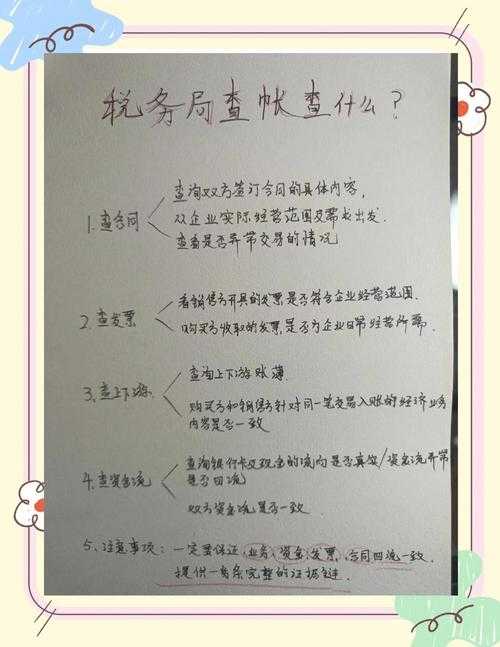 税务局查帐查什么?
1. 查合同
查询双方签订合同的具体内容,
从企业实际经营范围及需求出发.
查看是否异常交易的情况
2. 查发票
看销售方开具的发票是否符合企业经营范围.
购买方收取的发票,是否为企业日常经营所需.
3. 查上下游
查询上下游账薄.
购买方和销售方针对同一笔交易入账的经济业务
内容是否一致
4. 查资金流
查询银行卡及现金的流向是否真实/资金流异常
是否回流
双方资金流是否一致.
5、注意事项: 一定要保证,业务,资金,发票,合同四流一致.
提供一套完整的证据链.